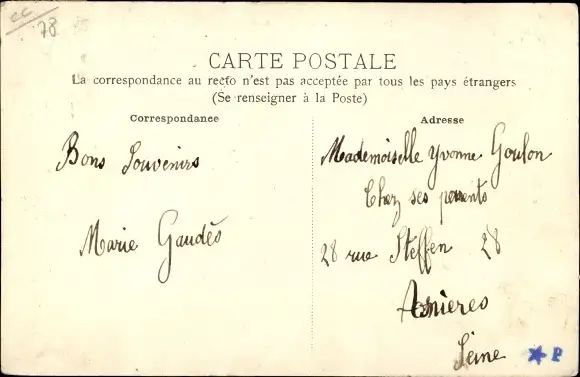 cc
78
CARTE POSTALE
La correspondance au recto n'est pas acceptée par tous les pays étrangers
(Se renseigner à la Poste)
Correspondance
Bons Souvenirs
Marie Gaudès
Adresse
Mademoiselle Yvonne Goulon
Chez ses parents
28 rue Steffen 28
Asnieres
Seine
★ P